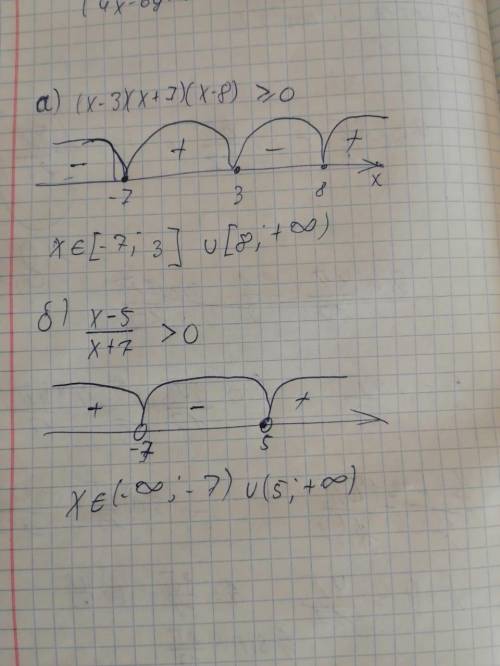 а) (x-3)(x+7)(x-8) ≥0
- + - +
-7 3 8 x
x∈[-7; 3] ∪[8; +∞)
б) x-5
x+7 >0
+ - +
-7 5
x∈(-∞; -7) ∪(5; +∞)